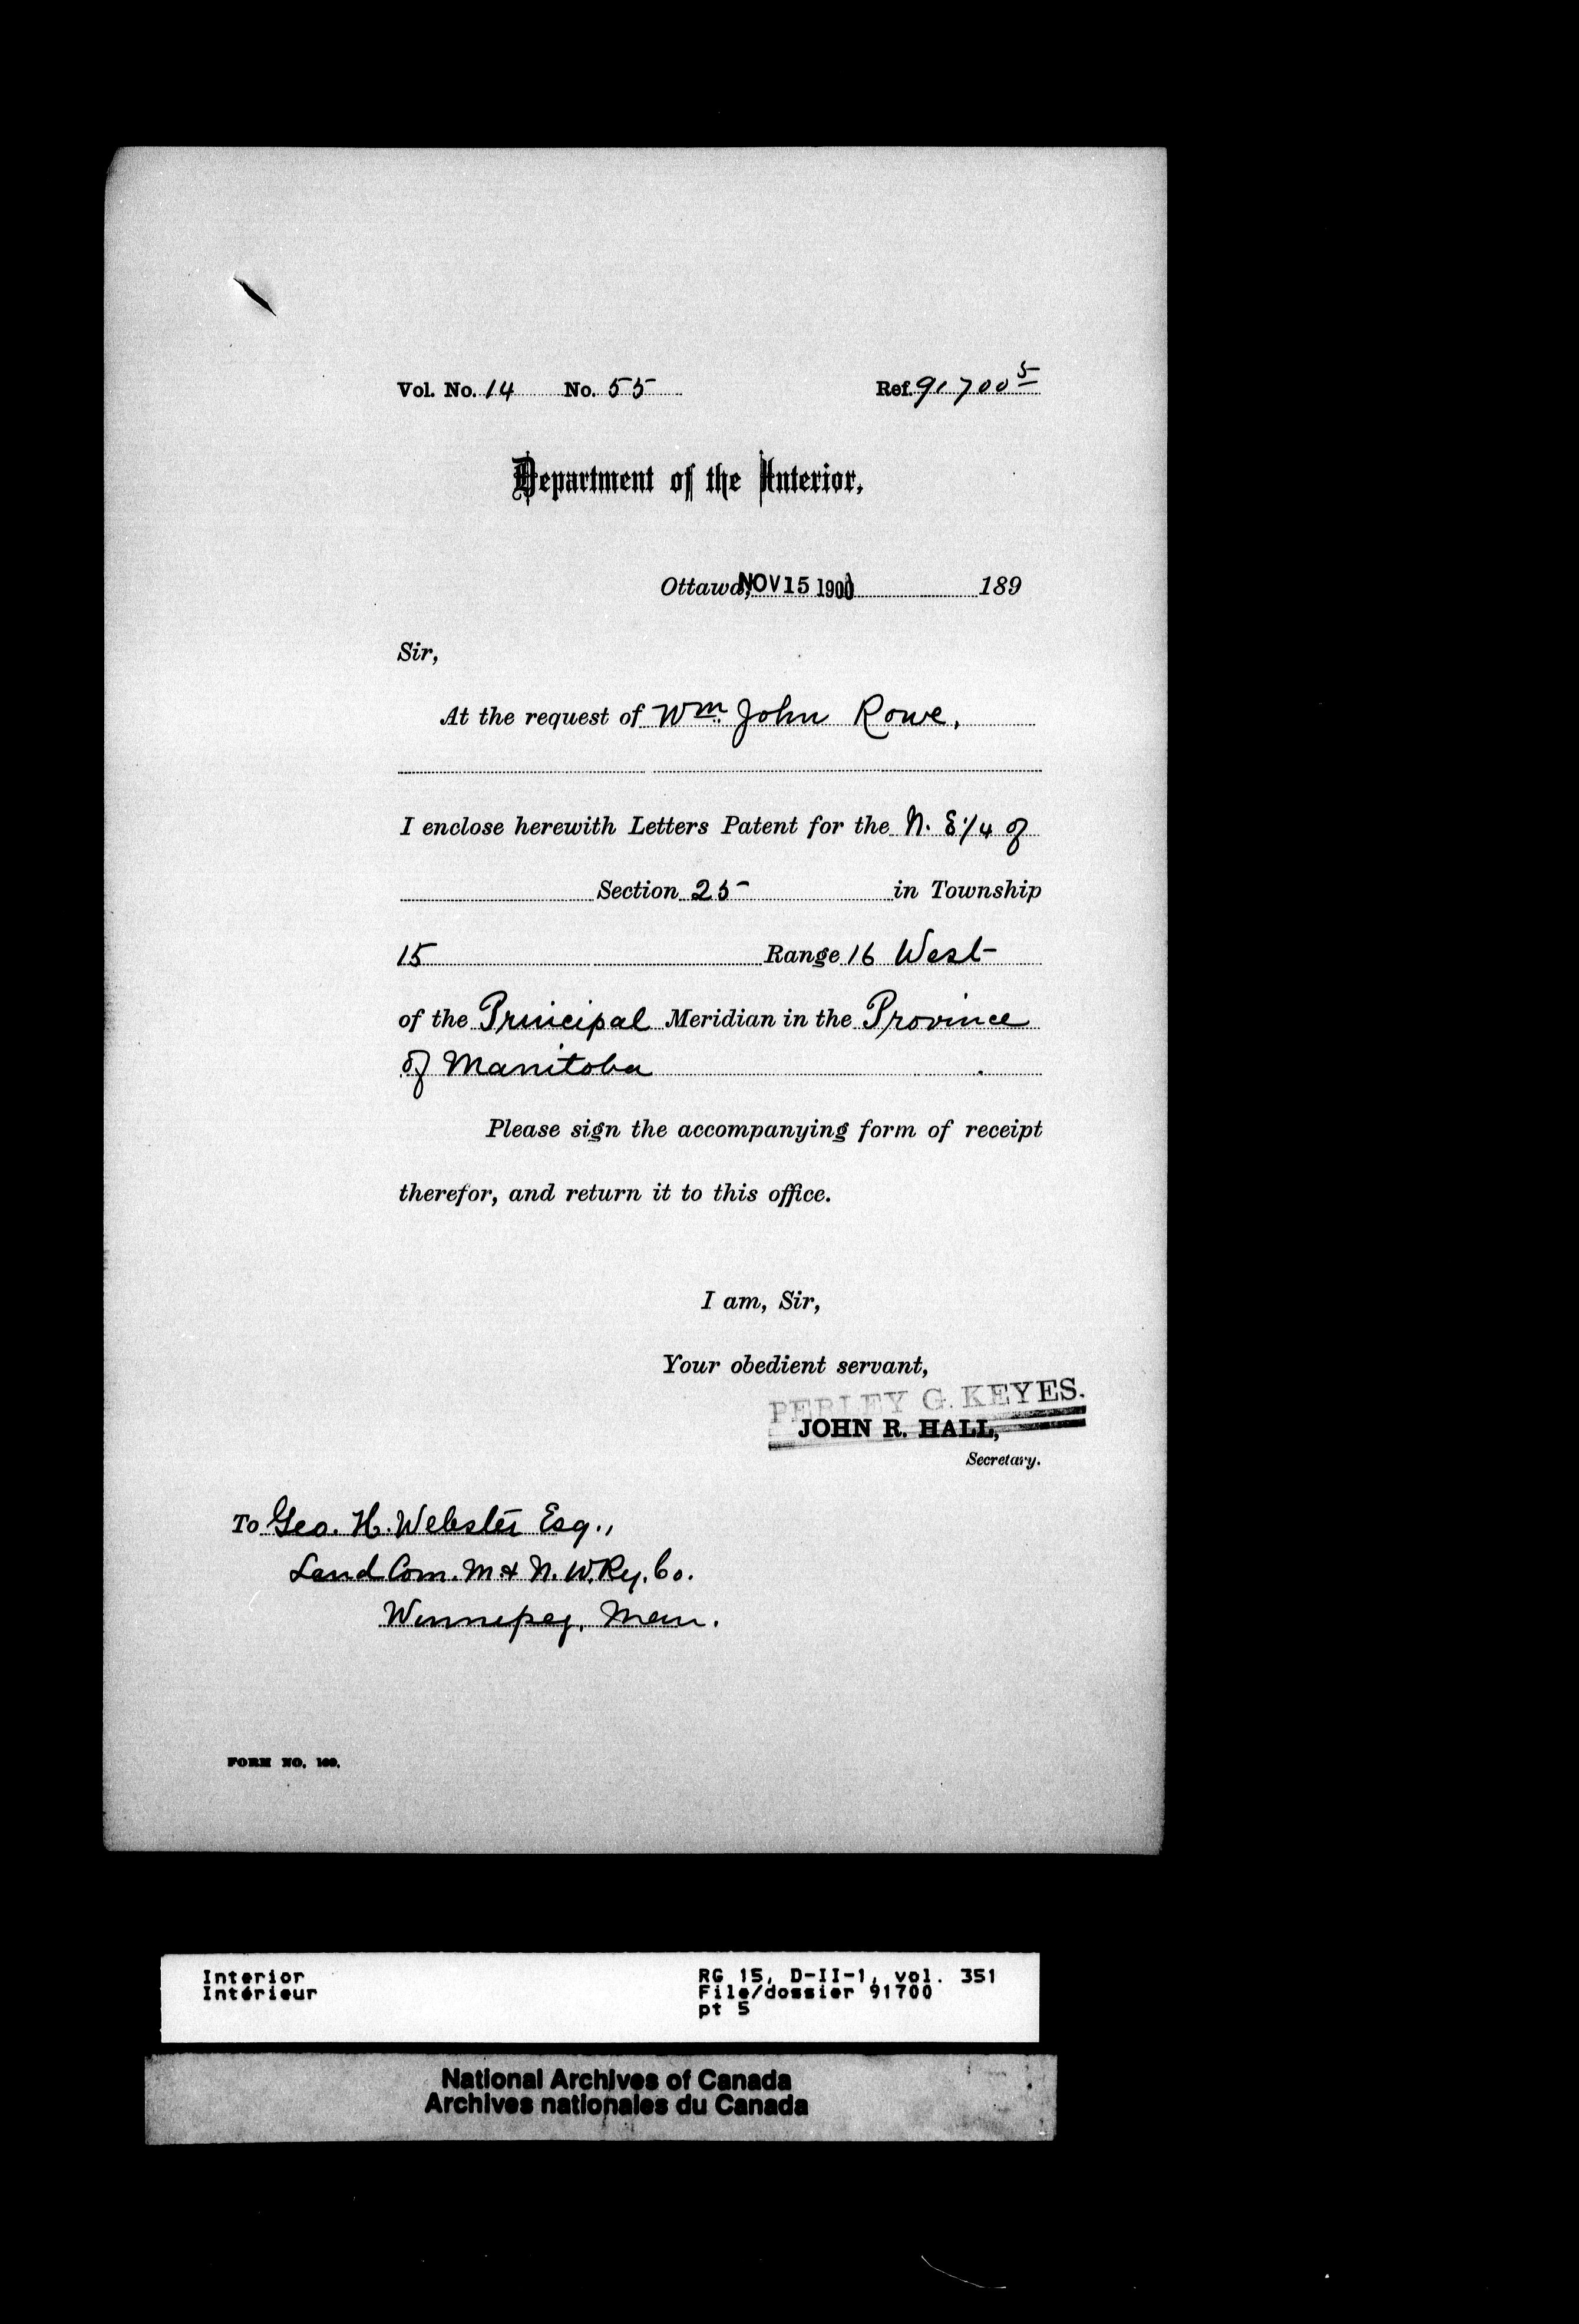 Vol. No. 14 No. 55 Ref. 91700 5
Department of the Interior,
Ottawa, NOV 15 1900 189
Sir,
At the request of Wm. John Rowe,
I enclose herewith Letters Patent for the N. E 1/4 of
Section 25 in Township
15 Range 16 West
of the Principal Meridian in the Province
of Manitoba .
Please sign the accompanying form of receipt
therefor, and return it to this office.
I am, Sir,
Your obedient servant,
PERLEY G. KEYES.
JOHN R. HALL,
Secretary.
To Geo. H. Webster Esq.,
Land Com. M & N. W. Ry. Co.
Winnipeg, Man.
FORM NO. 160.
Interior RG 15, D-II-1, vol. 351
Intérieur File/dossier 91700
pt 5
National Archives of Canada
Archives nationales du Canada